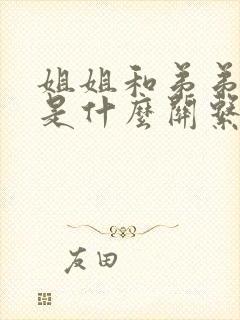 姐姐和弟弟
是什麼關繫
友田